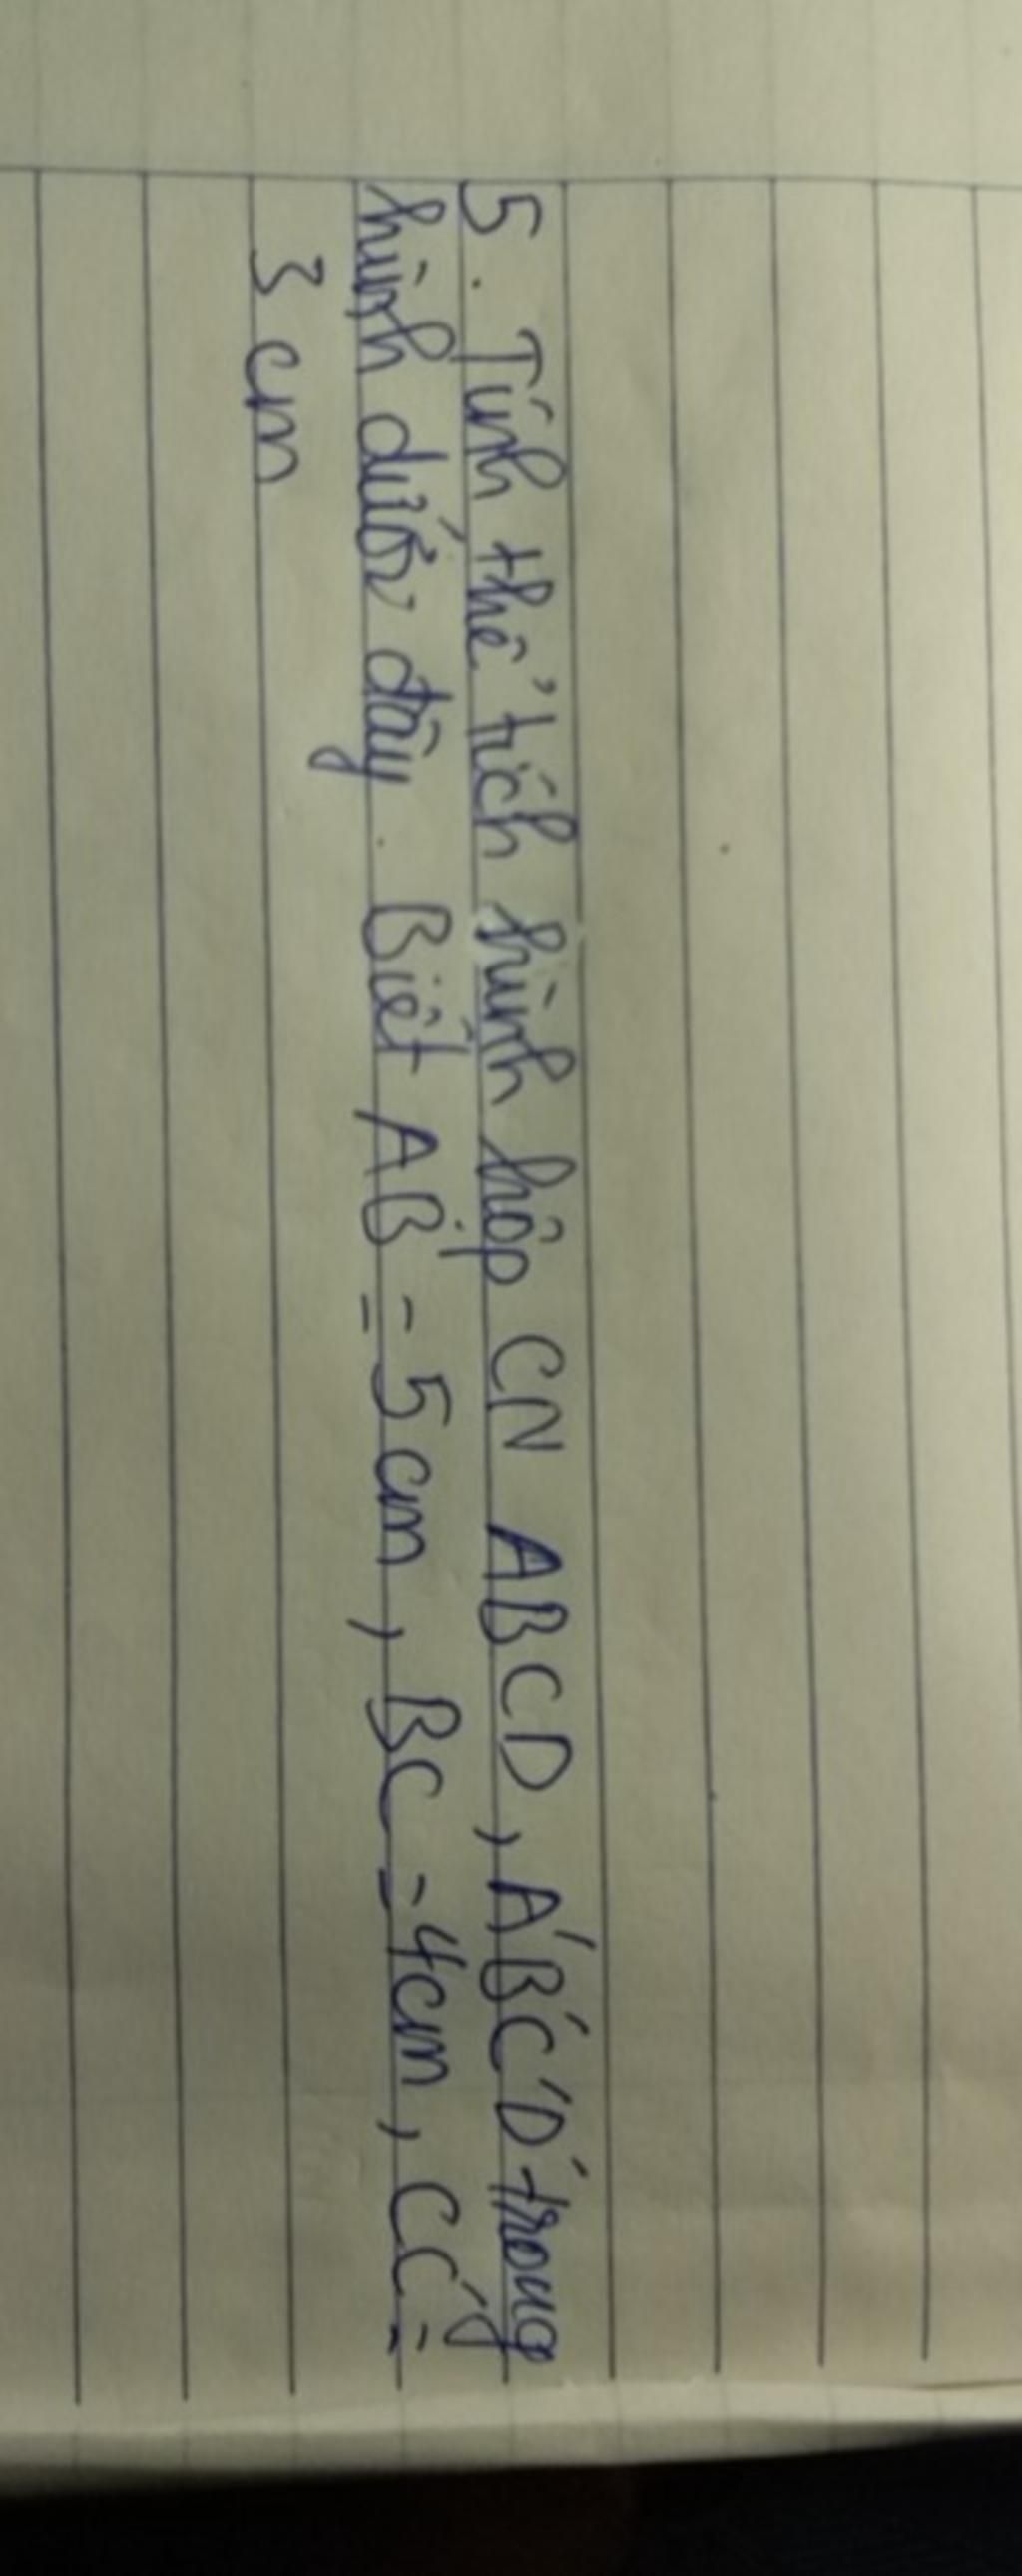 5. Tính thể tích hình hộp CN ABCD, A'B'C'D' trong
hình dưới đây. Biết AB = 5cm, BC = 4cm, CC' =
3 cm